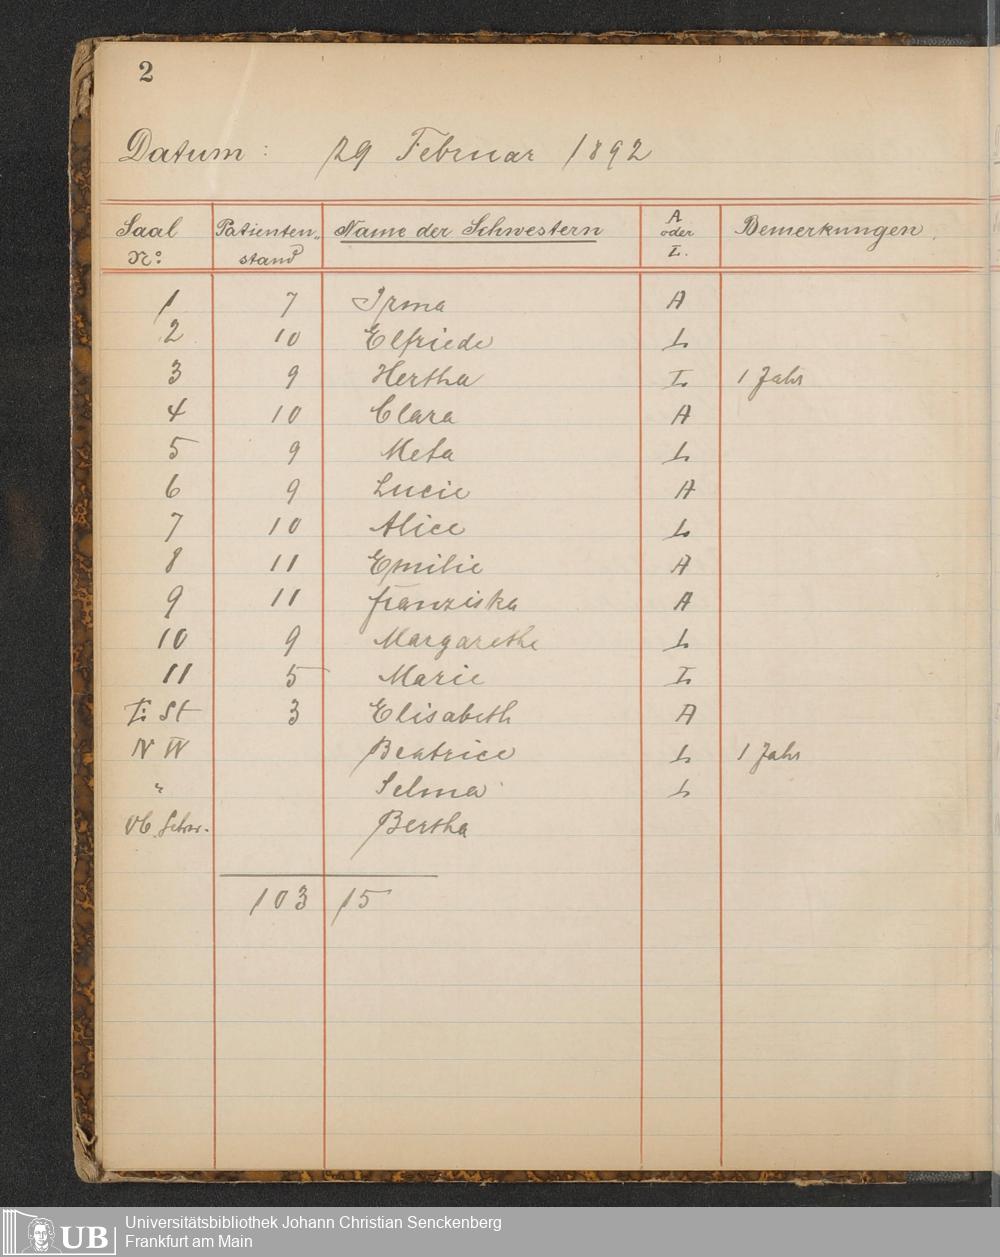 2
Datum : 29 Februar 1892
Saal No: Patienten„stand Name der Schwestern A oder L. Bemerkungen.
1 7 Irma A
2 10 Elfriede L
3 9 Hertha L 1 Jahr
4 10 Clara A
5 9 Meta L
6 9 Lucie A
7 10 Alice L
8 11 Emilie A
9 11 Franziska A
10 9 Margarethe L
11 5 Marie L
I. St 3 Elisabeth A
N W Beatrice L 1 Jahr
" Selma L
Ob. Schw. Bertha
103 15
Universitätsbibliothek Johann Christian Senckenberg
UB Frankfurt am Main